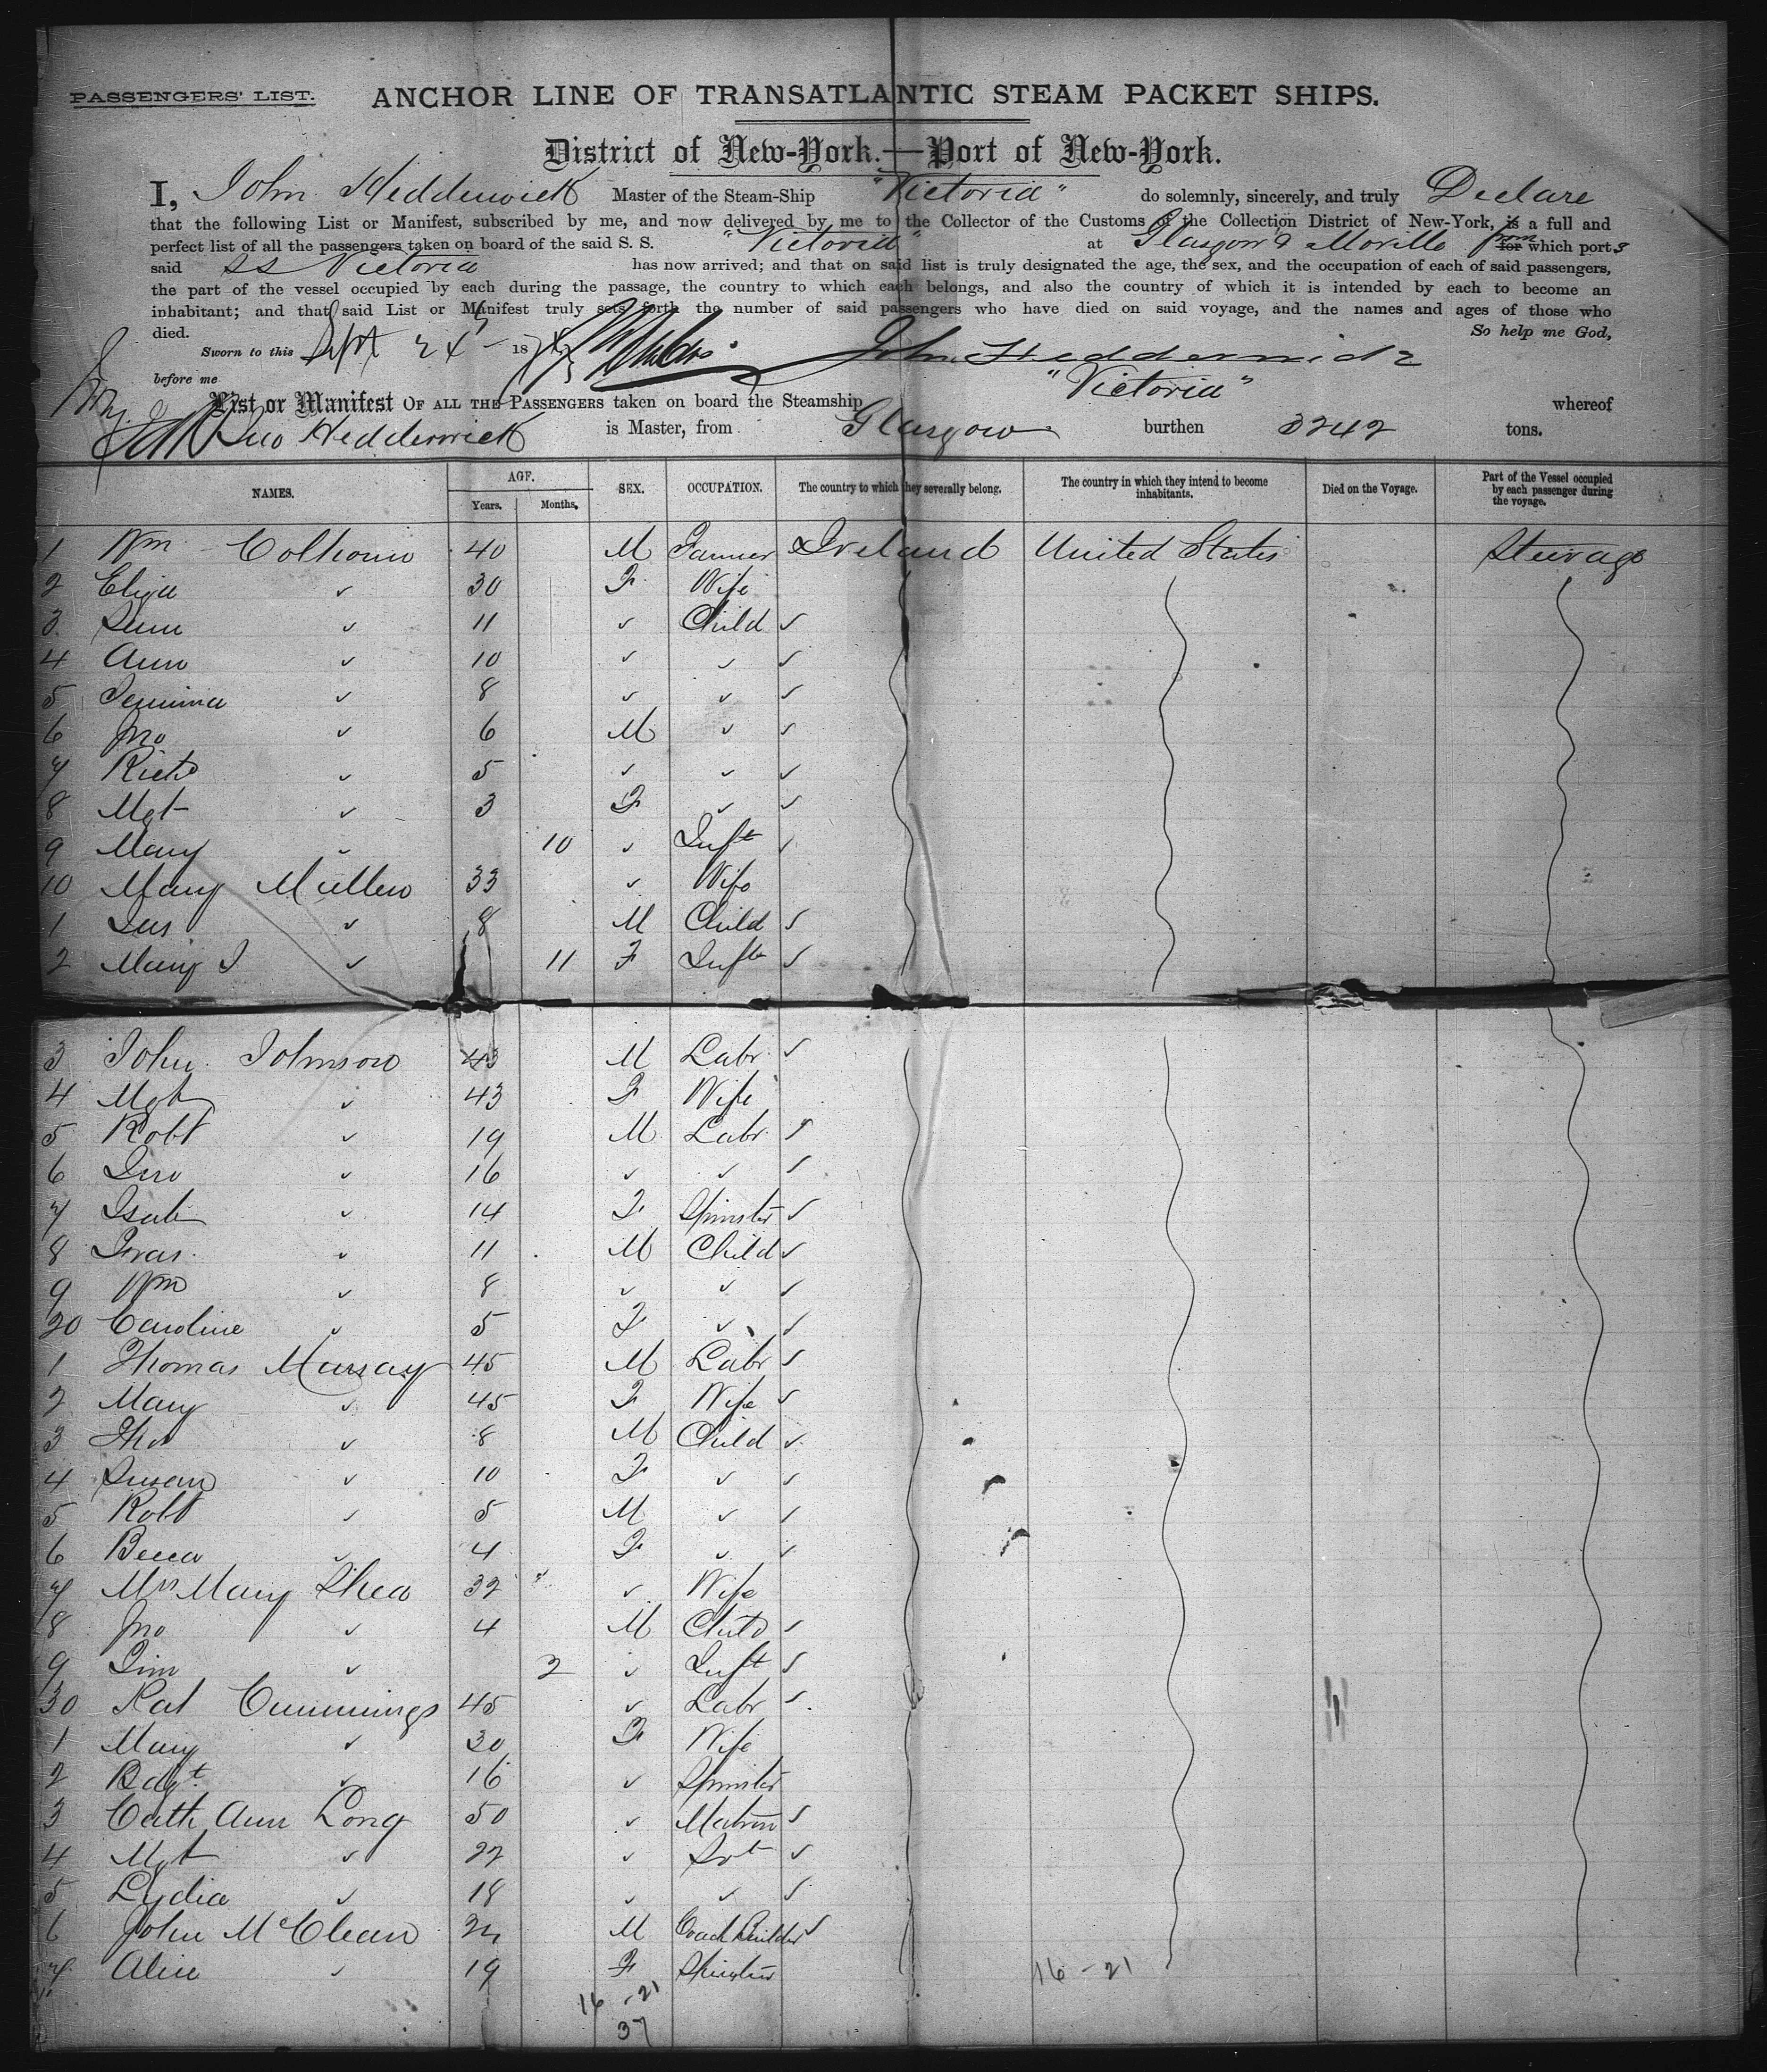 PASSENGERS' LIST. ANCHOR LINE OF TRANSATLANTIC STEAM PACKET SHIPS.
District of New-York.—Port of New-York.
I, John Hedderwick Master of the Steam-Ship "Victoria" do solemnly, sincerely, and truly Declare
that the following List or Manifest, subscribed by me, and now delivered by me to the Collector of the Customs of the Collection District of New-York, is a full and
perfect list of all the passengers taken on board of the said S. S. "Victoria" at Glasgow & Moville from for which port s
said SS Victoria has now arrived; and that on said list is truly designated the age, the sex, and the occupation of each of said passengers,
the part of the vessel occupied by each during the passage, the country to which each belongs, and also the country of which it is intended by each to become an
inhabitant; and that said List or Manifest truly sets forth the number of said passengers who have died on said voyage, and the names and ages of those who
died. So help me God,
Sworn to this Sept 24 18 John Hedderwick
before me
List or Manifest OF ALL THE PASSENGERS taken on board the Steamship "Victoria" whereof
Jno Hedderwick is Master, from Glasgow burthen 3242 tons.
NAMES. AGE. Years. Months. SEX. OCCUPATION. The country to which they severally belong. The country in which they intend to become inhabitants. Died on the Voyage. Part of the Vessel occupied by each passenger during the voyage.
1 Wm Colhoun 40 M Farmer Ireland United States Steerage
2 Eliza ✓ 30 F Wife
3 ✓ 11 ✓ Child ✓
4 Ann ✓ 10 ✓ ✓ ✓
5 Jemima ✓ 8 ✓ ✓ ✓
6 Jno ✓ 6 M ✓ ✓
7 Richd ✓ 5 ✓ ✓ ✓
8 Mgt ✓ 3 F ✓ ✓
9 Mary ✓ 10 ✓ Inft ✓
10 Mary Mullen 33 ✓ Wife
1 Jas ✓ 8 M Child ✓
2 Mary J ✓ 11 F Inft ✓
3 John Johnson 43 M Labr ✓
4 Mgt ✓ 43 F Wife
5 Robt ✓ 19 M Labr ✓
6 Jno ✓ 16 ✓ ✓ ✓
7 Isab ✓ 14 F Spinster ✓
8 Fras ✓ 11 M Child ✓
9 Wm ✓ 8 ✓ ✓ ✓
20 Caroline ✓ 5 F ✓ ✓
1 Thomas Murray 45 M Labr ✓
2 Mary ✓ 45 F Wife ✓
3 Thos ✓ 8 M Child ✓
4 Susan ✓ 10 F ✓ ✓
5 Robt ✓ 5 M ✓ ✓
6 Becca ✓ 4 F ✓ ✓
7 Mrs Mary Shea 32 ✓ Wife
8 Jno ✓ 4 M Child ✓
9 Jim ✓ 2 ✓ Inft ✓
30 Pat Cummings 45 ✓ Labr ✓
1 Mary ✓ 30 F Wife
2 Bdgt ✓ 16 ✓ Spinster
3 Cath Ann Long 50 ✓ Matron ✓
4 Mgt ✓ 22 ✓ Svt ✓
5 Lydia ✓ 18 ✓ ✓ ✓
6 John McClean 24 M Coach Builder ✓
7 Alice ✓ 19 F Spinster
16 - 21 16 - 21
37